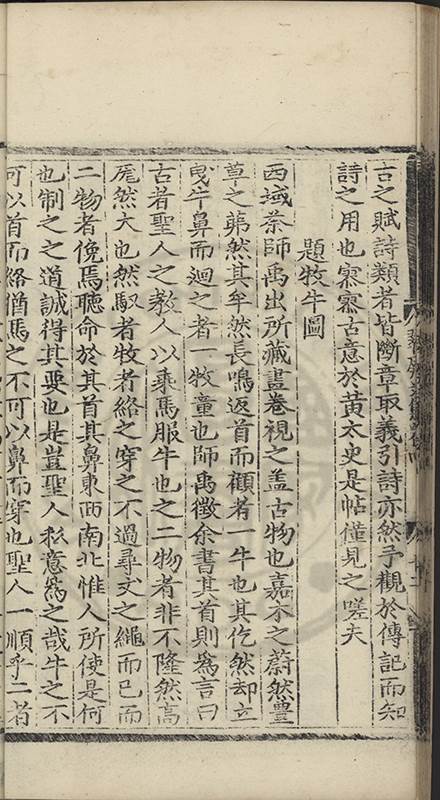 古之賦詩類者皆斷章取義引詩亦然予觀於傳記而知
詩之用也寥寥古意於黃太史是帖僅見之嗟夫
題牧牛圖
西域柰師禹出所藏畫卷視之盖古物也嘉木之蔚然豊
草之茀然其牟然長鳴返首而顧者一牛也其仡然却立
曳牛鼻而迴之者一牧童也師禹徵余書其首則爲言曰
古者聖人之教人以乘馬服牛也之二物者非不隆然高
厖然大也然馭者牧者絡之穿之不過尋丈之繩而已而
二物者俛焉聽命於其首其鼻東西南北惟人所使是何
也制之之道誠得其要也是豈聖人私意爲之哉牛之不
可以首而絡猶馬之不可以鼻而穿也聖人一順乎二者